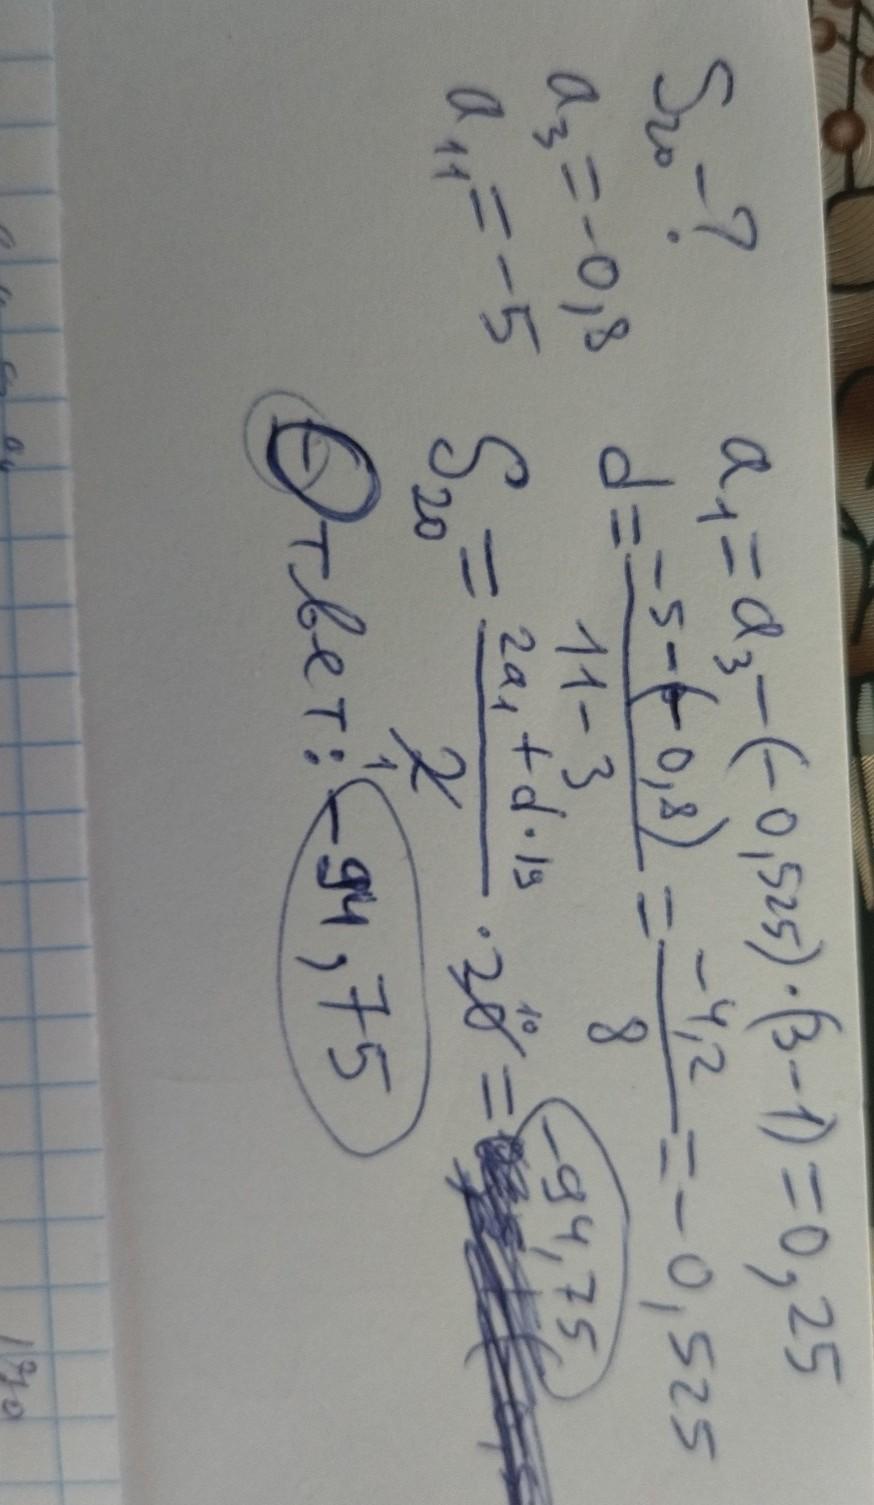 S₂₀ - ?
a₃ = -0,8
a₁₁ = -5
a₁ = a₃ - (-0,525) · (3-1) = 0,25
d = \frac{-5-(-0,8)}{11-3} = \frac{-4,2}{8} = -0,525
S₂₀ = \frac{2a₁ + d · 19}{2} · 20 = -94,75
1 10
Ответ: -94,75